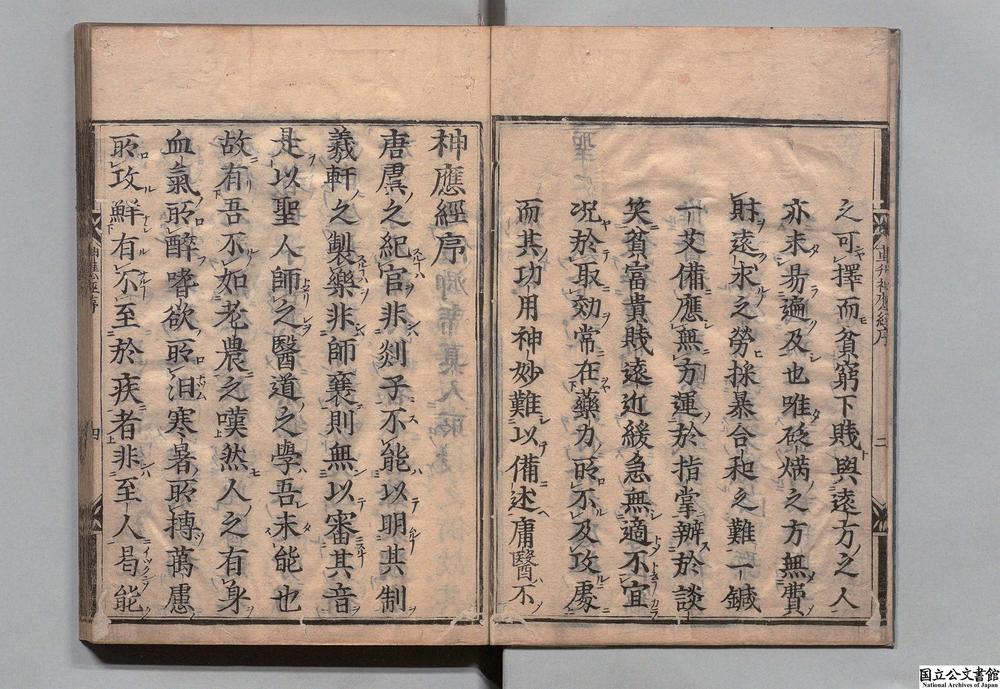 之可擇而貧窮下賤與遠方之人
亦未易遍及也唯砭焫之方無費
財遠求之勞採暴合和之難一鍼
一艾備應無方運於指掌辦於談
笑貧富貴賤遠近緩急無適不宜
况於取効常在藥力所不及攻處
而其功用神妙難以備述庸醫不
神應經序
唐虞之紀官非剡子不能以明其制
羲軒之製樂非師襄則無以審其音
是以聖人師之醫道之學吾未能也
故有吾不如老農之嘆然人之有身
血氣所醉嗜欲所汨寒暑所摶萬慮
所攻鮮有不至於疾者非至人曷能
重刊神應經序
二
神應經序
四
国立公文書館
National Archives of Japan